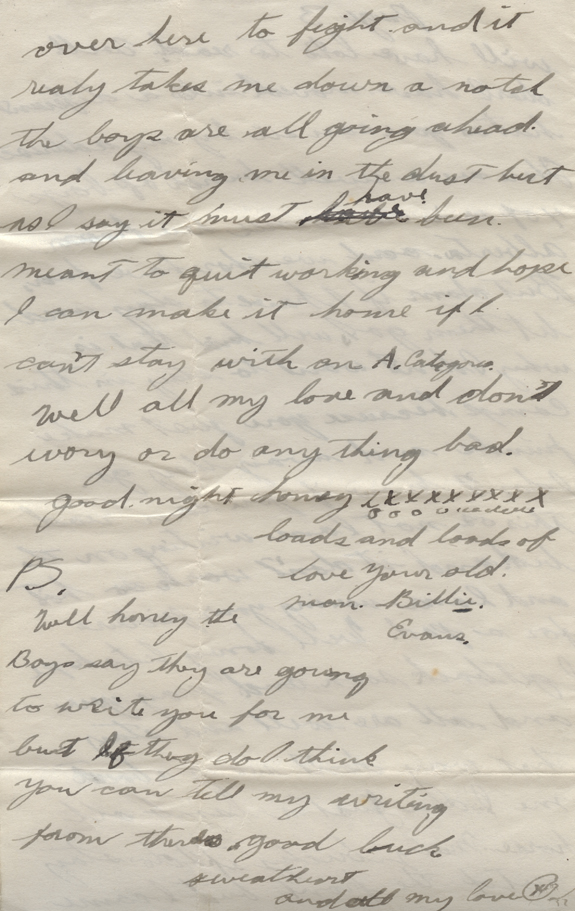 over here to fight and it
realy takes me down a notch
the boys are all going ahead.
and leaving me in the dust but
as I say it must have been.
meant to quit working and hope
I can make it home if I.
can't stay with an A. Catogoru.
Well all my love and don't
wory or do any thing bad.
good night honey xxxxxxxxx
loads and loads of
love your old.
man. Billie.
Evans.
PS.
Well honey the
Boys say they are gowing
to write you for me
but If they do I think
you can tell my writing
from there. good luck
sweathert
and all my love